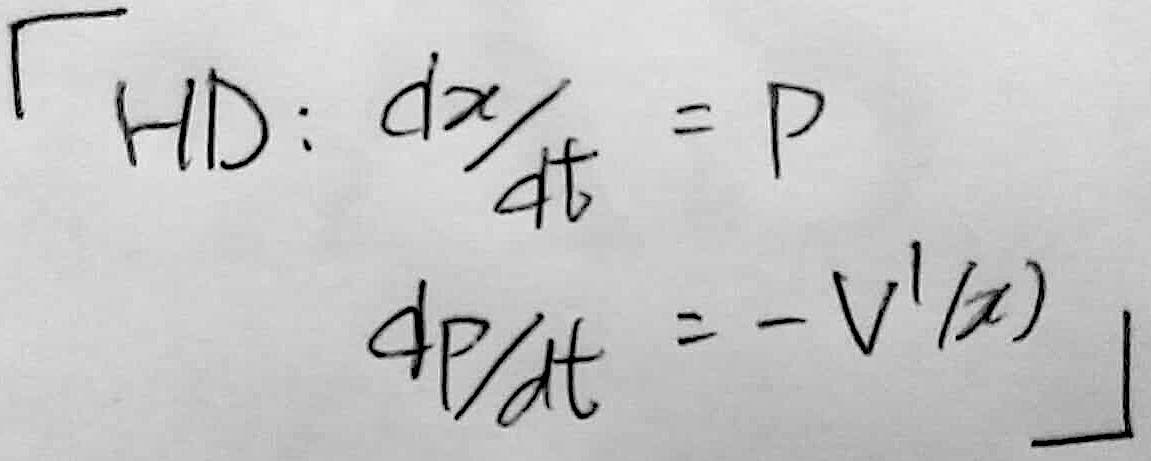 「HD: dx/dt = P
dp/dt = - V'(x)」